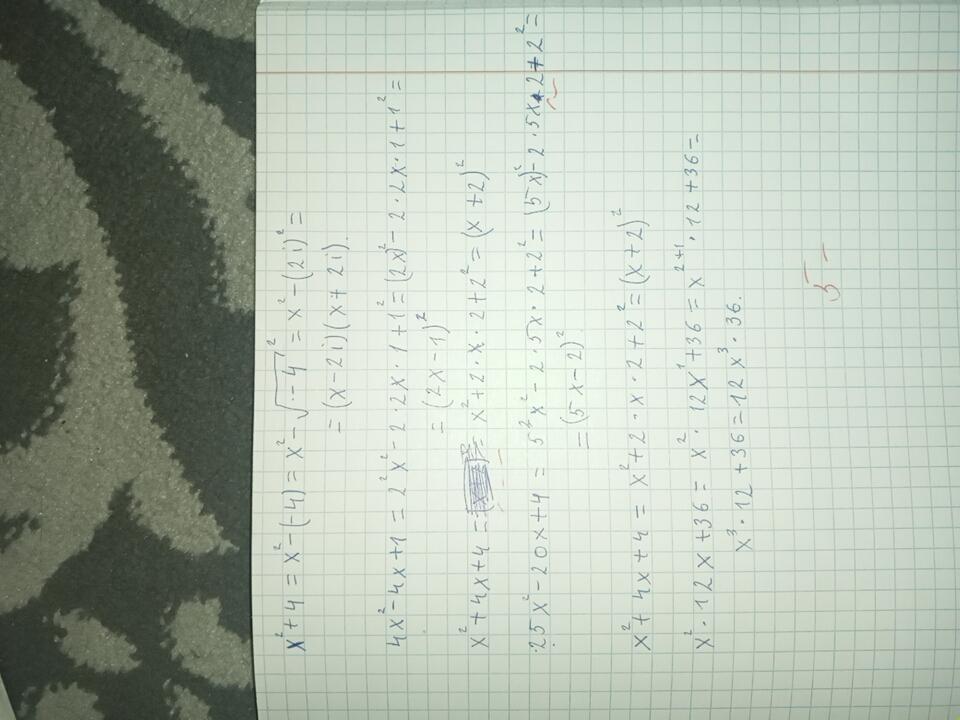 x² + 4 = x² - (-4) = x² - √-4² = x² - (2i)² =
= (x - 2i)(x + 2i).
4x² - 4x + 1 = 2²x² - 2 · 2x · 1 + 1² = (2x)² - 2 · 2x · 1 + 1² =
= (2x - 1)²
x² + 4x + 4 = = x² + 2 · x · 2 + 2² = (x + 2)²
25x² - 20x + 4 = 5²x² - 2 · 5x · 2 + 2² = (5x)² - 2 · 5x · 2 + 2² =
= (5x - 2)²
x² + 4x + 4 = x² + 2 · x · 2 + 2² = (x + 2)²
x² · 12x + 36 = x² · 12x¹ + 36 = x²⁺¹ · 12 + 36 =
x³ · 12 + 36 = 12x³ · 36.
5-